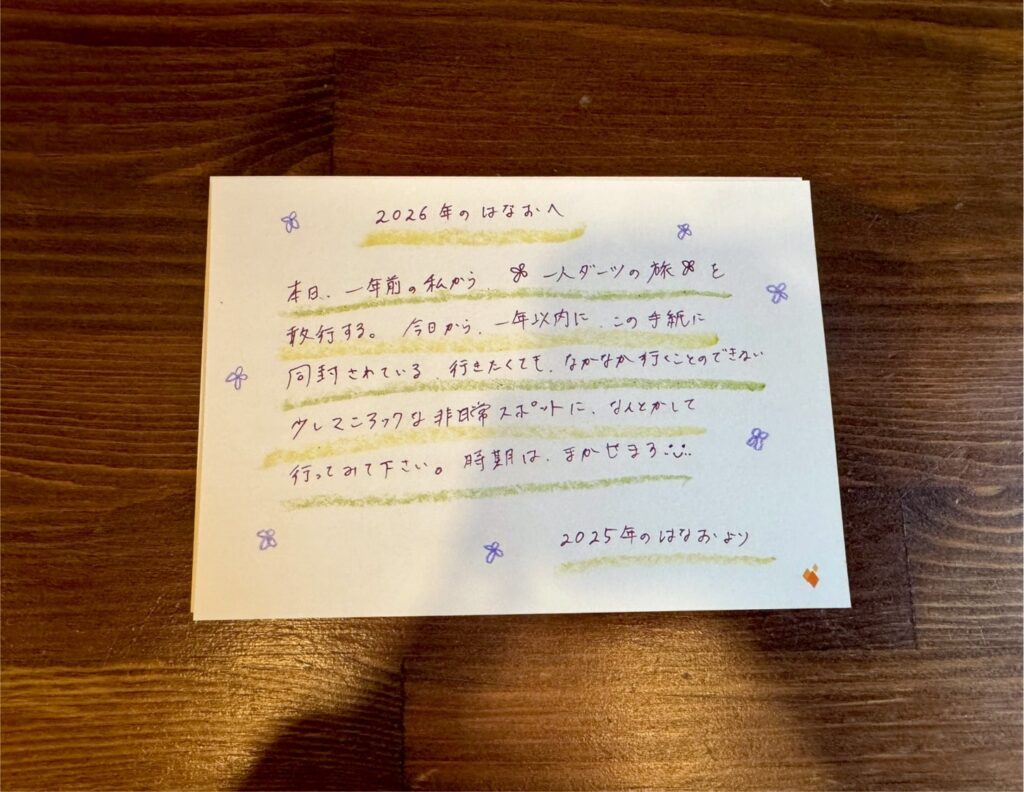 2026年のはなおへ
本日、一年前の私から 一人ダーツの旅 を
敢行する。今日から、一年以内に、この手紙に
同封されている 行きたくても、なかなか行くことのできない
少しマニアックな非日常スポットに、なんとかして
行ってみて下さい。時期は、まかせまる
2025年のはなおより